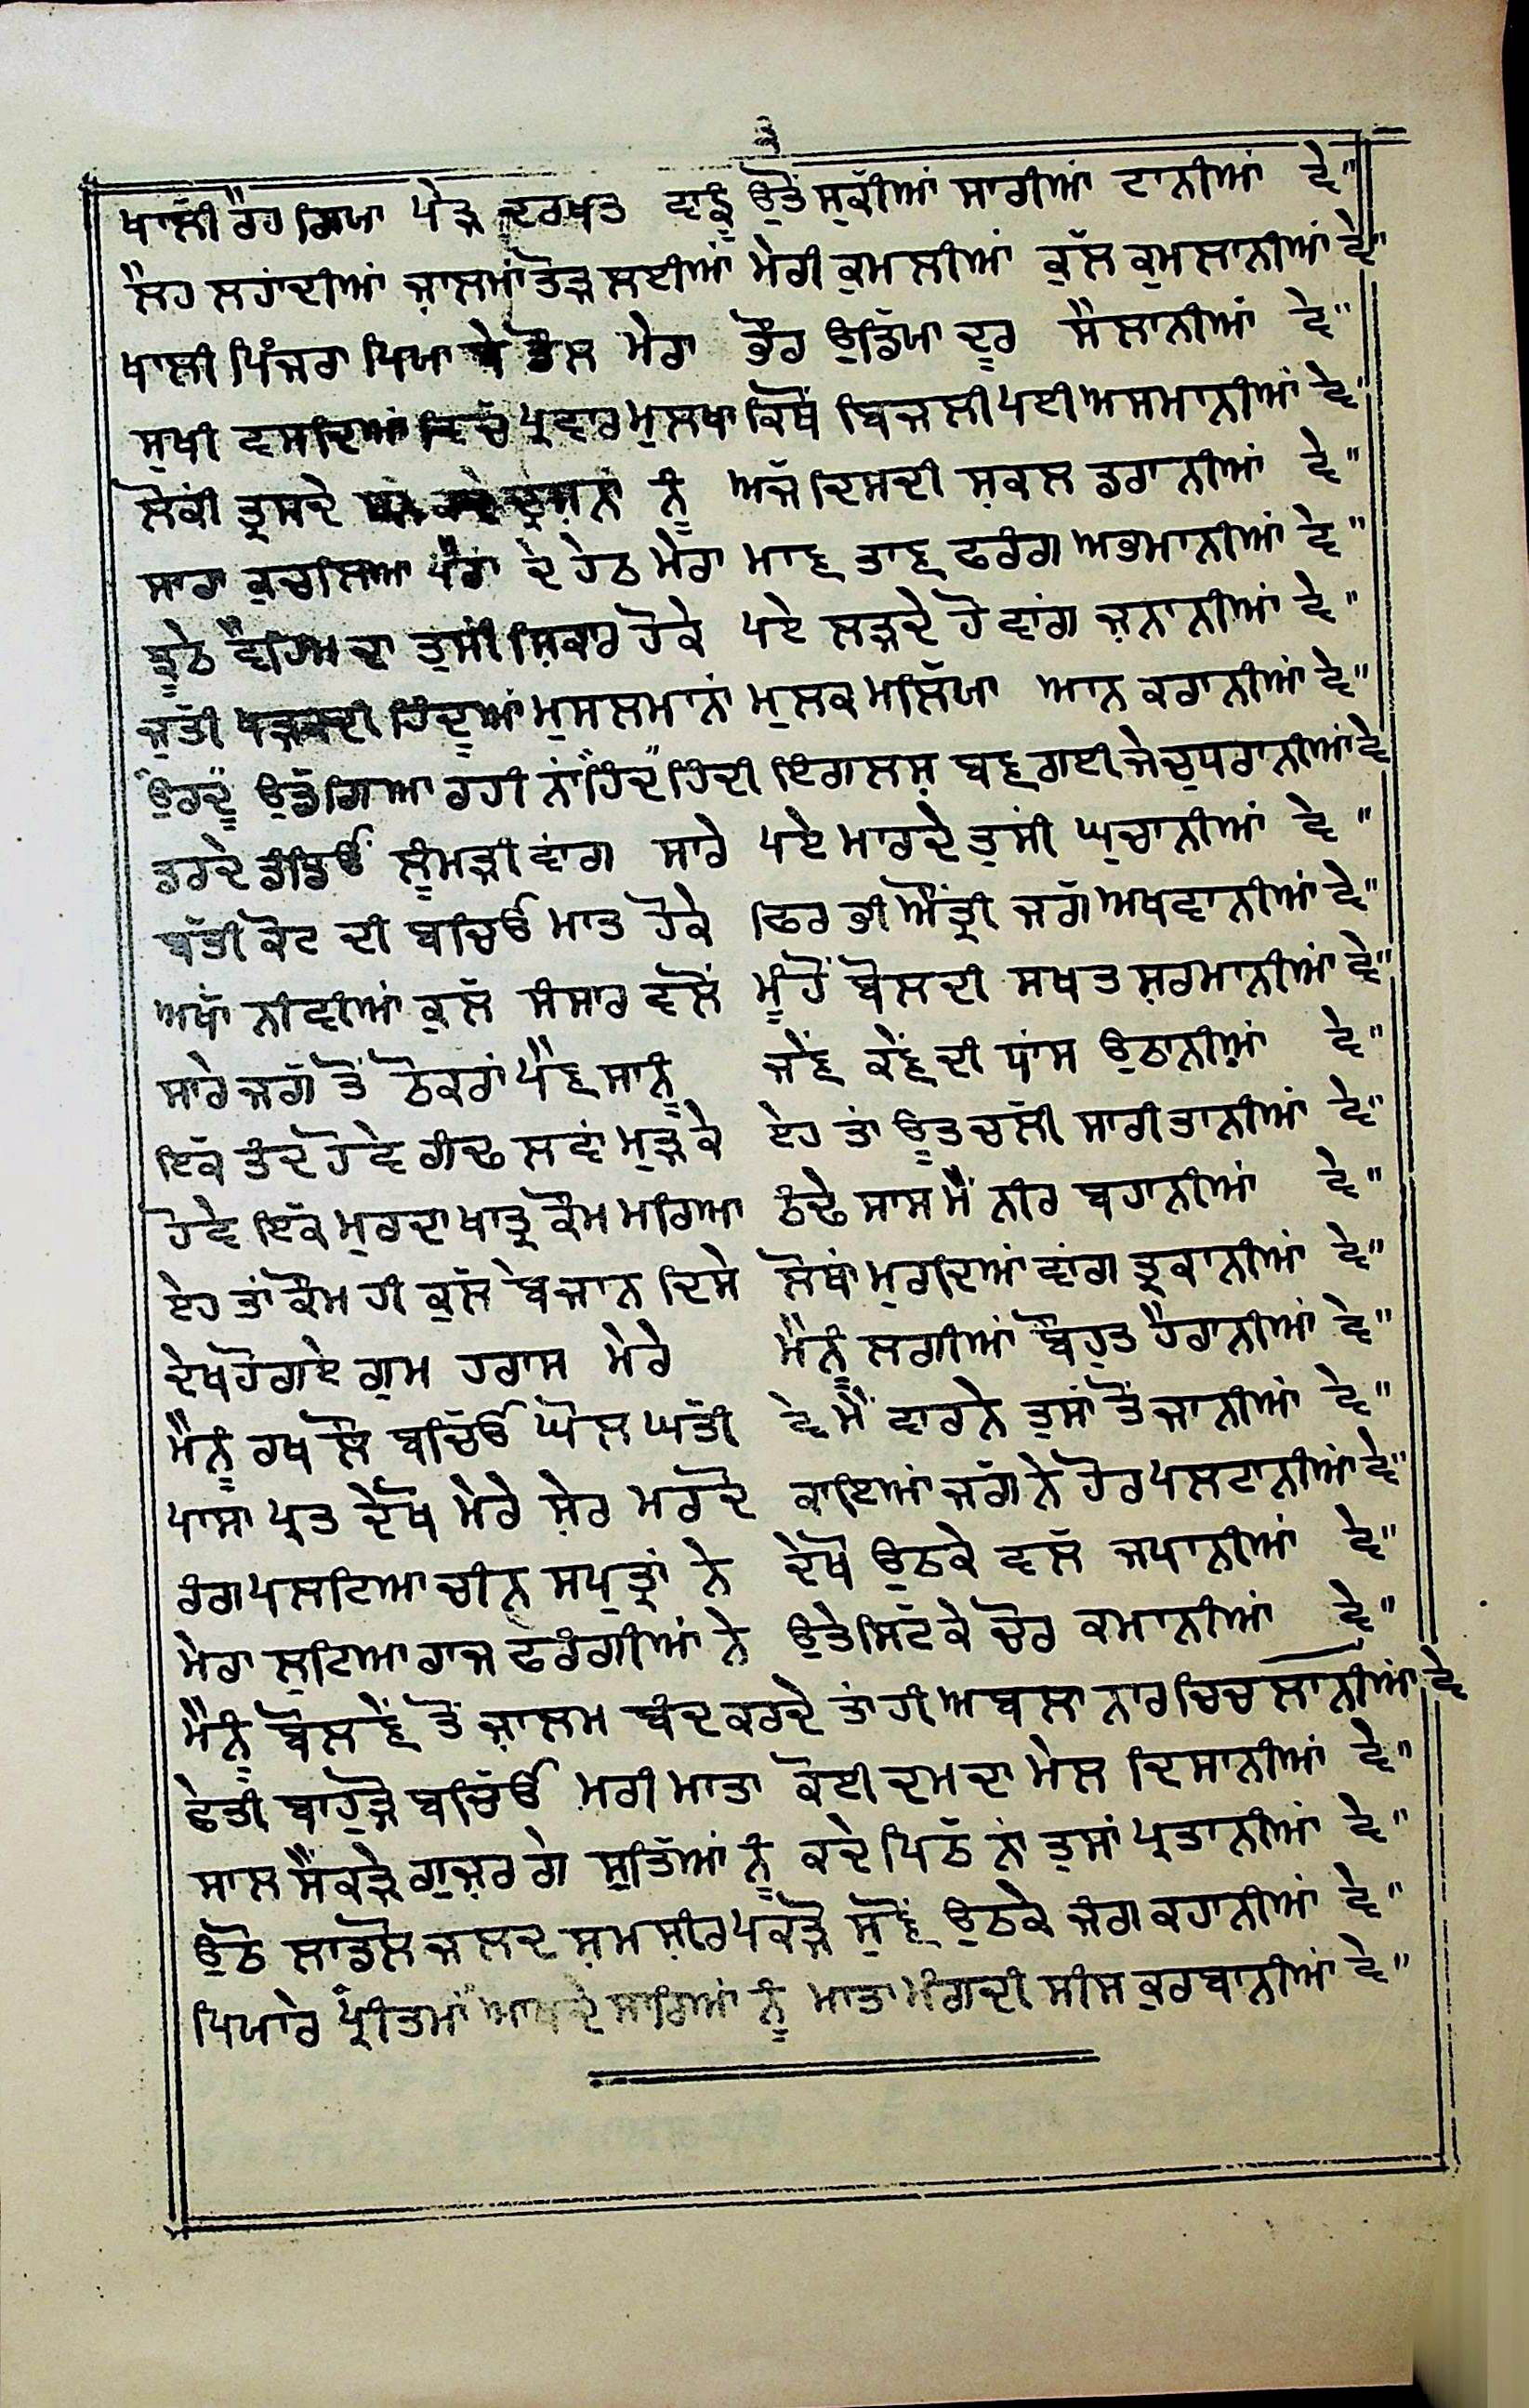 ੩
ਖਾਲੀ ਰੈਹ ਗਿਯਾ ਪੇੜ ਦਰਖਤ ਵਾਙੂ ਉਤੋਂ ਸੁਕੀਆਂ ਸਾਰੀਆਂ ਟਾਨੀਆਂ ਵੇ"
ਲੈਹ ਲਹਾਂਦੀਆਂ ਜ਼ਾਲਮਾਂ ਤੋੜ ਲਈਆਂ ਮੇਰੀ ਕੁਮਲੀਆਂ ਕੁੱਲ ਕੁਮਲਾਨੀਆਂ ਵੇ"
ਖਾਲੀ ਪਿੰਜਰਾ ਪਿਯਾ ਬੇ ਡੌਲ ਮੇਰਾ ਭੌਰ ਉਡਿੱਯਾ ਦੂਰ ਸੈਲਾਨੀਆਂ ਵੇ"
ਸੁਖੀ ਵਸਦਿਆਂ ਵਿਚੱ ਪ੍ਰਵਾਰ ਮੁਲਖਾ ਕਿਥੋਂ ਬਿਜਲੀ ਪਈ ਅਸਮਾਨੀਆਂ ਵੇ"
ਲੋਕੀਂ ਤ੍ਰਸਦੇ ਦ੍ਰਸ਼ਨਾਂ ਨੂੰ ਅਜੱ ਦਿਸਦੀ ਸ਼ਕਲ ਡਰਾਨੀਆਂ ਵੇ"
ਸਾਰਾ ਕੁਚਲਿਆ ਪੈਰਾਂ ਦੇ ਹੇਠ ਮੇਰਾ ਮਾਣ ਤਾਣ ਫਰੰਗ ਅਭਮਾਨੀਆਂ ਵੇ"
ਝੂਠੇ ਵੈਹਿਮ ਦਾ ਤੁਸੀਂ ਸ਼ਿਕਾਰ ਹੋਕੇ ਪਏ ਲੜਦੇ ਹੋ ਵਾਂਗ ਜ਼ਨਾਨੀਆਂ ਵੇ"
ਜੁਤੀ ਖੜਕਦੀ ਹਿੰਦੂਆਂ ਮੁਸਲਮਾਨਾਂ ਮੁਲਕ ਮਲਿੱਯਾ ਆਨ ਕਰਾਨੀਆਂ ਵੇ"
"ਉਰਦੂ" ਉਡੱ ਗਿਆ ਰਹੀ ਨਾਂ "ਹਿੰਦ" ਹਿੰਦੀ ਇੰਗਲਸ਼ ਬਣ ਗਈ ਜੇ ਚੁਧਰਾਨੀਆਂ ਵੇ
ਡਰਦੇ ਗੀਦੜੋਂ ਲੂੰਮੜੀ ਵਾਂਗ ਸਾਰੇ ਪਏ ਮਾਰਦੇ ਤੁਸੀਂ ਘੁਚਾਨੀਆਂ ਵੇ"
ਬੱਤੀ ਕੋਟ ਦੀ ਬਚਿਓ ਮਾਤ ਹੋਕੇ ਫਿਰ ਭੀ ਔਂਤ੍ਰੀ ਜਗੱ ਅਖਵਾਨੀਆਂ ਵੇ"
ਅਖਾਂ ਨੀਵੀਆਂ ਕੁਲੱ ਸੰਸਾਰ ਵਲੋਂ ਮੂੰਹੋਂ ਬੋਲਦੀ ਸਖਤ ਸ਼ਰਮਾਨੀਆਂ ਵੇ"
ਸਾਰੇ ਜਗੱ ਤੋਂ ਠੋਕਰਾਂ ਪੈਣ ਸਾਨੂੰ ਜੇਂਣ ਕੇਂਣ ਦੀ ਧਾਂਸ ਉਠਾਨੀਆਂ ਵੇ"
ਇੱਕ ਤੰਦ ਹੋਵੇ ਗੰਢ ਲਵਾਂ ਮੁੜਕੇ ਏਹ ਤਾਂ ਊਤ ਚਲੀ ਸਾਰੀ ਤਾਨੀਆਂ ਵੇ"
ਹੋਵੇ ਇੱਕ ਮੁਰਦਾ ਖਾਤ੍ਰ ਕੌਮ ਮਰਿਆ ਠੰਢੇ ਸਾਸ ਮੈਂ ਨੀਰ ਬਹਾਨੀਆਂ ਵੇ"
ਏਹ ਤਾਂ ਕੌਮ ਹੀ ਕੁਲੱ ਬੇਜਾਨ ਦਿਸੇ ਲੋਥਾਂ ਮੁਰਦਿਆਂ ਵਾਂਗ ਤ੍ਰਕਾਨੀਆਂ ਵੇ"
ਦੇਖ ਹੋਗਏ ਗੁਮ ਹਰਾਸ ਮੇਰੇ ਮੈਨੂੰ ਲਗੀਆਂ ਬੌਹੁਤ ਹੈਰਾਨੀਆਂ ਵੇ"
ਮੈਨੂੰ ਰਖ ਲੌ ਬਚਿੱਓ ਘੋਲ ਘਤੀ ਵੇ ਮੈਂ ਵਾਰਨੇ ਤੁਸਾਂ ਤੋਂ ਜਾਨੀਆਂ ਵੇ"
ਪਾਸਾ ਪ੍ਰਤ ਦੇਖੋ ਮੇਰੇ ਸ਼ੇਰ ਮਰਦੋ ਕਾਇਆਂ ਜਗੱ ਨੇ ਹੋਰ ਪਲਟਾਨੀਆਂ ਵੇ"
ਰੰਗ ਪਲਟਿਆ ਚੀਨ ਸਪੁਤ੍ਰਾਂ ਨੇ ਦੇਖੋ ਉਠਕੇ ਵਲੱ ਜਪਾਨੀਆਂ ਵੇ"
ਮੇਰਾ ਲੁਟਿਆ ਰਾਜ ਫਰੰਗੀਆਂ ਨੇ ਉਤੇ ਸਿਟੱਕੇ ਚੋਰ ਕਮਾਨੀਆਂ ਵੇ"
ਮੈਨੂੰ ਬੋਲਣੋਂ ਤੋਂ ਜ਼ਾਲਮ ਬੰਦ ਕਰਦੇ ਤਾਂਹੀ ਅਬਲਾ ਨਾਰ ਚਿਚਲਾਨੀਆਂ ਵੇ
ਛੇਤੀ ਬਾਹੁੜੋ ਬਚਿੱਓ ਮਰੀ ਮਾਤਾ ਕੋਈ ਦਮ ਦਾ ਮੇਲ ਦਿਸਾਨੀਆਂ ਵੇ"
ਸਾਲ ਸੈਂਕੜੇ ਗੁਜ਼ਰ ਗੇ ਸੁਤਿੱਆਂ ਨੂੰ ਕਦੇ ਪਿਠੱ ਨਾਂ ਤੁਸਾਂ ਪ੍ਰਤਾਨੀਆਂ ਵੇ"
ਉਠੋ ਲਾਡਲੋ ਜਲਦ ਸ਼ਮਸ਼ੀਰ ਪਕੜੋ ਸੁਣੋਂ ਉਠਕੇ ਜੰਗ ਕਹਾਨੀਆਂ ਵੇ"
ਪਿਯਾਰੇ "ਪ੍ਰੀਤਮਾਂ" ਆਖਦੇ ਸਾਰਿਆਂ ਨੂੰ ਮਾਤਾ ਮੰਗਦੀ ਸੀਸ ਕੁਰਬਾਨੀਆਂ ਵੇ"